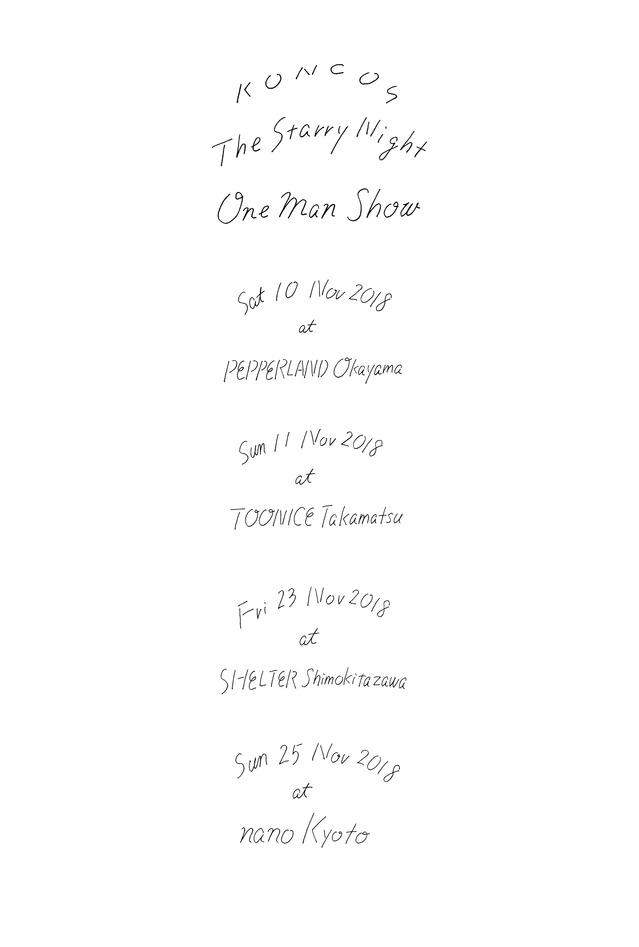 KONCOS
The Starry Night
One Man Show
Sat 10 Nov 2018
at
PEPPERLAND Okayama
Sun 11 Nov 2018
at
TOONICE Takamatsu
Fri 23 Nov 2018
at
SHELTER Shimokitazawa
Sun 25 Nov 2018
at
nano Kyoto